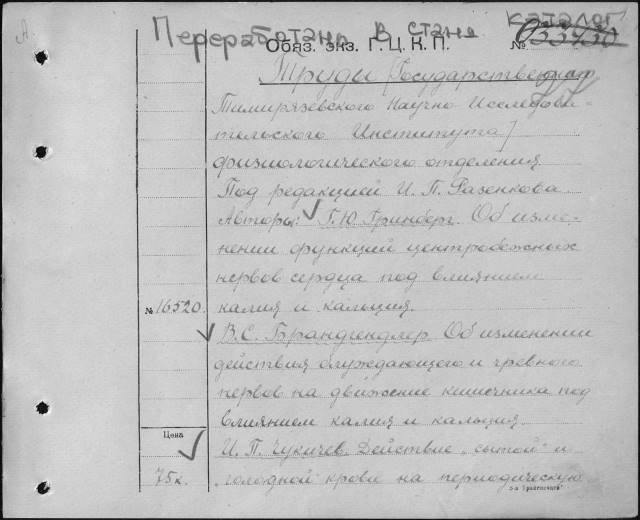 Переработана в стан. каталог
Обяз. экз. Г.Ц.К.П. №
Труды [Государственная
Тимирязевского Научно Исследова-
тельского Института]
физиологического отделения
Под редакцией И. П. Разенкова.
Авторы: Г. Ю. Гринберг. Об изме-
нении функций центробежных
нервов сердца под влиянием
№ 16520. калия и кальция.
В. С. Брандгендлер. Об изменении
действия блуждающего и чревного
нервов на движение кишечника под
влиянием калия и кальция.
Цена И. П. Чукичев. Действие „сытой" и
75 к. „голодной" крови на периодическую